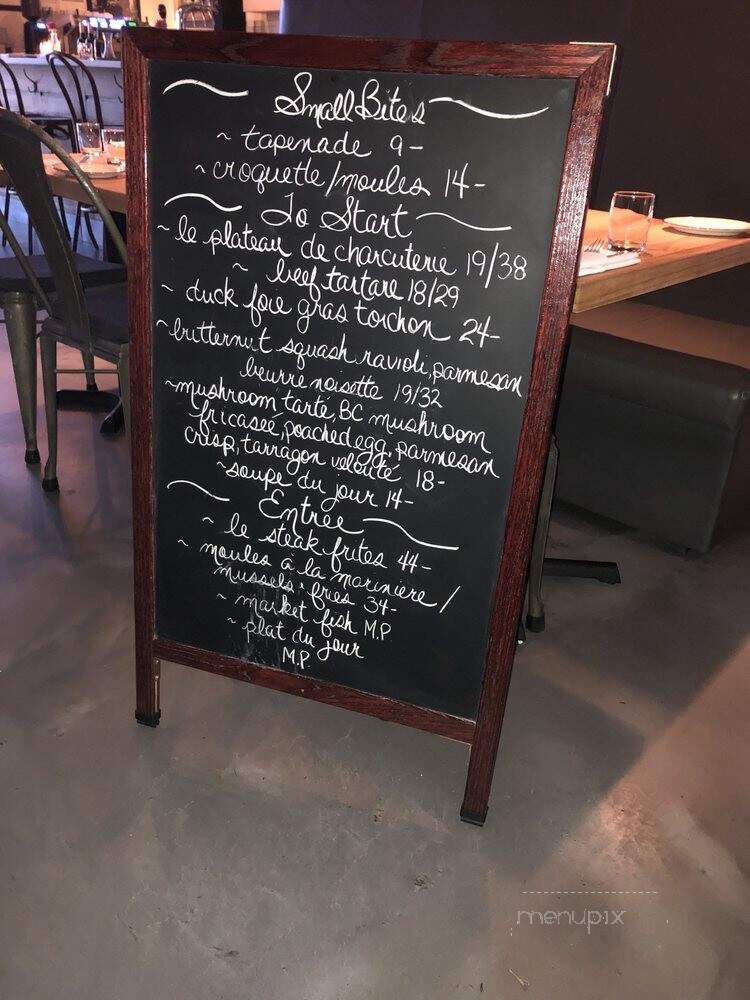 Small Bites
~ tapenade 9-
~ croquette/moules 14-
To Start
~ le plateau de charcuterie 19/38
~ beef tartare 18/29
~ duck foie gras torchon 24-
~butternut squash ravioli, parmesan
beurre noisette 19/32
~mushroom tarte, BC mushroom
fricaseé, poached egg, parmesan
crisp, tarragon velouté 18-
~soupe du jour 14-
Entree
~ le steak frites 44-
~ moules à la mariniere/
mussels + fries 34-
~ market fish M.P
~ plat du jour
M.P.
menupix